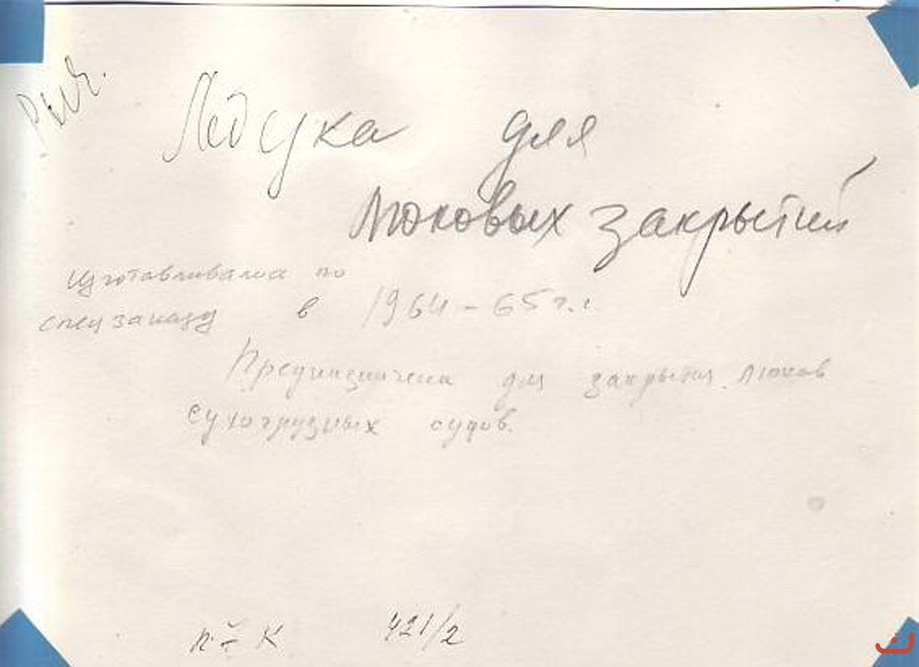 Лебедка для
люковых закрытий
Изготавливалась по
спецзаказу в 1964-65 г.г.
Предназначена для закрытия люков
сухогрузных судов.
К 421/2